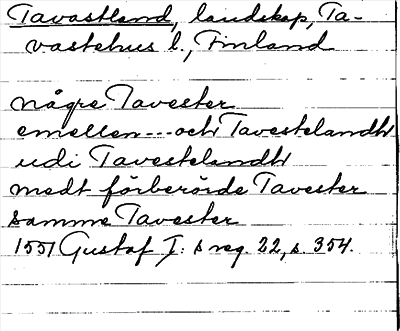 Tavastland, landskap, Ta-
vastehus l., Finland
någre Tavester
emellen---och Tavestelandh
udi Tavestelandh
medt förberörde Tavester
samme Tavester
1551 Gustaf I:s reg. 22, s. 354.